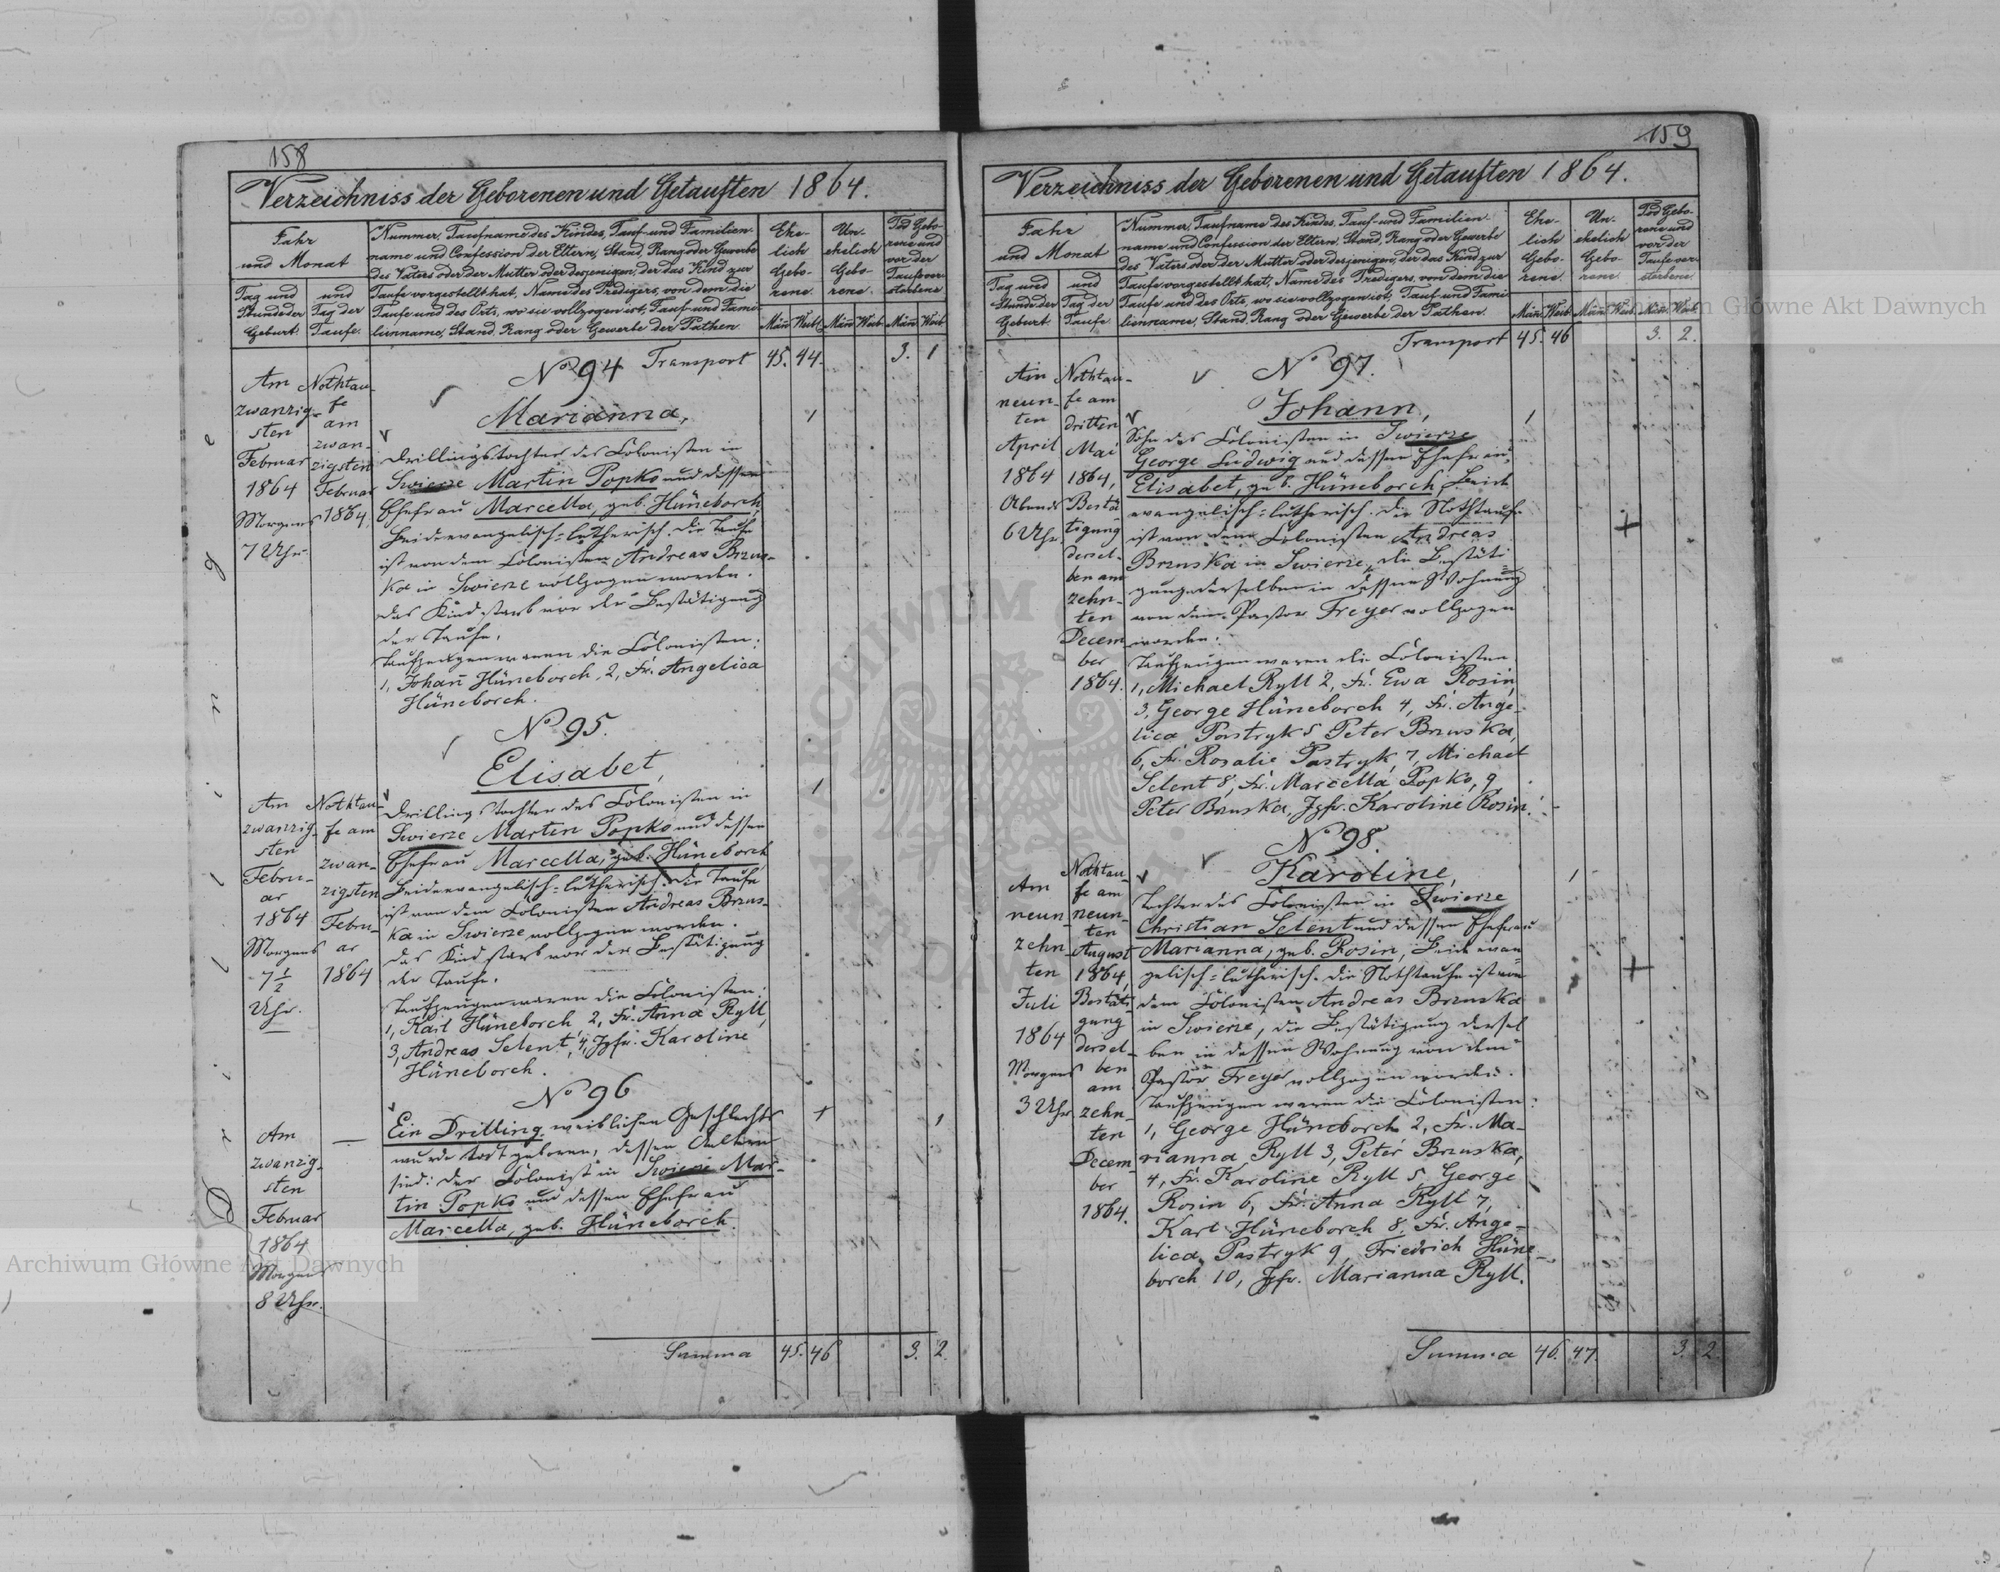 158
Verzeichniss der Geborenen und Getauften 1864.
Jahr
und Monat
Tag und
Stunde der
Geburt.
und
Tag der
Taufe.
Nummer, Taufname des Kindes, Tauf- und Familien-
name und Confession der Eltern, Stand, Rang oder Gewerbe
des Vaters oder der Mutter oder desjenigen, der das Kind zur
Taufe vorgestellt hat, Name des Predigers, von dem die
Taufe und des Orts, wo sie vollzogen ist, Tauf- und Fami-
lienname, Stand, Rang oder Gewerbe der Pathen.
Ehe-
lich
Gebo-
rene.
Un-
ehelich
Gebo-
rene.
Tod Gebo-
rene und
vor der
Taufe ver-
storbene
Män. Weib. Män. Weib. Män. Weib
Transport 45. 44. 3. 1
Drillinge
No 94
Marianna,
Am
zwanzig-
sten
Februar
1864
Morgens
7 Uhr.
Nothtau-
fe
am
zwan-
zigsten
Februar
1864.
Drillingstochter des Colonisten in
Swierze Martin Popko und dessen
Ehefrau Marcella, geb. Hüneborch,
Beide evangelisch=lutherisch. Die Taufe
ist von dem Colonisten Andreas Brzus-
ka in Swierze vollzogen worden.
Das Kind starb vor der Bestätigung
der Taufe.
Taufzeugen waren die Colonisten:
1, Johan̄ Hüneborch, 2, Fr. Angelica
Hüneborch.
1
No 95.
Elisabet,
Am
zwanzig-
sten
Febru-
ar
1864
Morgens
7 1/2
Uhr.
Nothtau-
fe am
zwan-
zigsten
Febru-
ar
1864
Drillingstochter des Colonisten in
Swierze Martin Popko und dessen
Ehefrau Marcella, geb. Hüneborch
Beide evangelisch=lutherisch. Die Taufe
ist von dem Colonisten Andreas Brzus-
ka in Swierze vollzogen worden.
Das Kind starb vor der Bestätigung
der Taufe.
Taufzeugen waren die Colonisten:
1, Karl Hüneborch 2, Fr. Anna Ryll,
3, Andreas Selent, 4, Jgfr. Karoline
Hüneborch.
1
No 96
Am
zwanzig-
sten
Februar
1864
Morgens
8 Uhr.
Ein Drilling weiblichen Geschlechts
wurde todt geboren, dessen Aeltern
sind: der Colonist in Swierze Mar-
tin Popko und dessen Ehefrau
Marcella, geb. Hüneborch.
+ 1
Summa 45. 46 3. 2.
159
Verzeichniss der Geborenen und Getauften 1864.
Jahr
und Monat
Tag und
Stunde der
Geburt.
und
Tag der
Taufe.
Nummer, Taufname des Kindes, Tauf- und Familien-
name und Confession der Eltern, Stand, Rang oder Gewerbe
des Vaters oder der Mutter oder desjenigen, der das Kind zur
Taufe vorgestellt hat, Name des Predigers, von dem die
Taufe und des Orts, wo sie vollzogen ist, Tauf- und Fami-
lienname, Stand, Rang oder Gewerbe der Pathen.
Ehe-
lich
Gebo-
rene.
Un-
ehelich
Gebo-
rene.
Tod Gebo-
rene und
vor der
Taufe ver-
storbene
Män. Weib. Män. Weib. Män. Weib.
Transport 45. 46 3. 2.
No 97.
Johann,
Am
neun-
ten
April
1864
Abends
6 Uhr.
Nothtau-
fe am
dritten
Mai
1864,
Bestä
tigung
dersel-
ben am
zehn-
ten
Decem
ber
1864.
Sohn des Colonisten in Swierze
George Ludwig und dessen Ehefrau
Elisabet, geb. Hüneborch, Beide
evangelisch=lutherisch. Die Nothtaufe
ist von dem Colonisten Andreas
Brzuska in Swierze, die Bestäti
gung derselben in dessen Wohnung
von dem Pastor Freyer vollzogen
worden.
Taufzeugen waren die Colonisten
1, Michael Ryll 2, Fr. Ewa Rosin,
3, George Hüneborch 4, Fr. Ange-
lica Pastryk 5 Peter Brzuska,
6, Fr. Rosalie Pastryk, 7, Michael
Selent 8, Fr. Marcella Popko, 9
Peter Bruska, Jgfr. Karoline Rosin.
1
+
No 98.
Karoline,
Am
neun-
zehn-
ten
Juli
1864
Morgens
3 Uhr.
Nothtau-
fe am
neun-
ten
August
1864,
Bestäti
gung
dersel-
ben
am
zehn-
ten
Decem-
ber
1864.
Tochter des Colonisten in Swierze
Christian Selent und dessen Ehefrau
Marianna, geb. Rosin, Beide evan
gelisch=lutherisch. Die Nothtaufe ist von
dem Colonisten Andreas Brzuska
in Swierze, die Bestätigung dersel
ben in dessen Wohnung von dem
Pastor Freyer vollzogen worden.
Taufzeugen waren die Colonisten:
1, George Hüneborch 2, Fr. Ma-
rianna Ryll 3, Peter Brzuska,
4, Fr. Karoline Ryll 5, George
Rosin 6, Fr. Anna Ryll 7,
Karl Hüneborch 8, Fr. Ange-
lica Pastryk 9, Friedrich Hüne-
borch 10, Jgfr. Marianna Ryll.
1
+
Summa 46. 47. 3. 2.
Archiwum Główne Akt Dawnych
Archiwum Główne Akt Dawnych